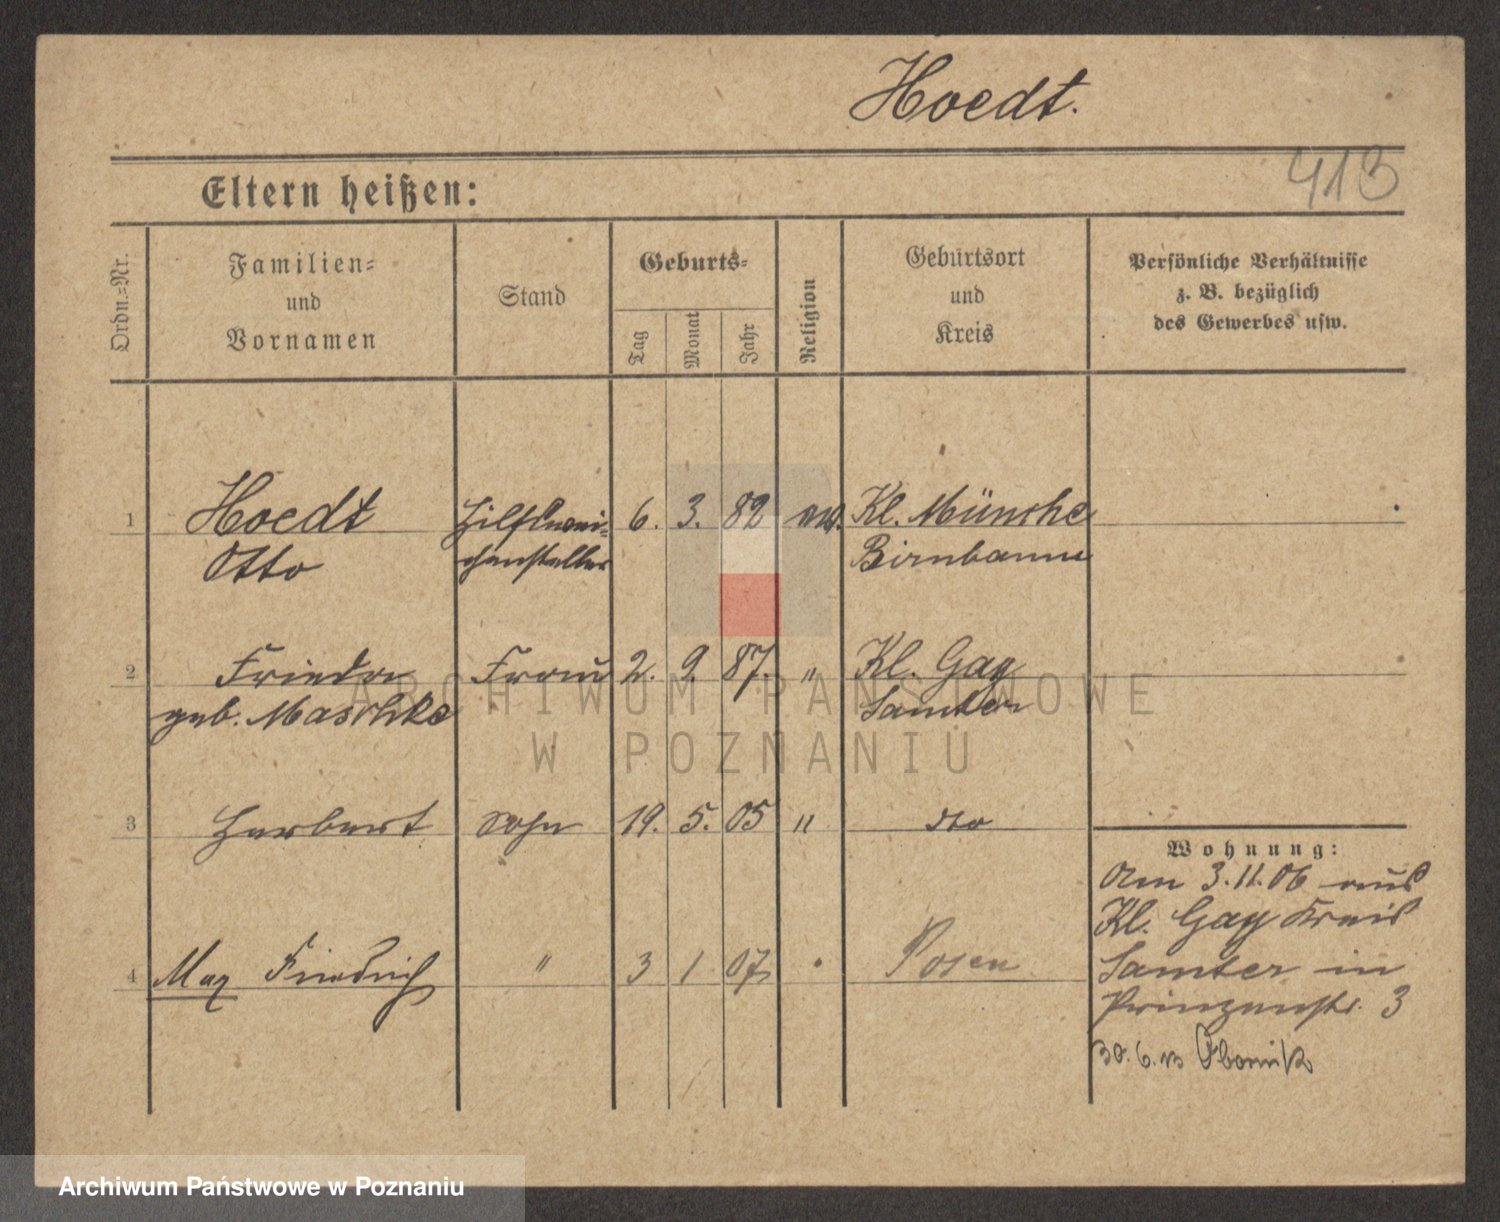 Hoedt.
413
Eltern heißen:
Ordn.-Nr.
Familien-
und
Vornamen
Stand
Geburts-
Tag
Monat
Jahr
Religion
Geburtsort
und
Kreis
Persönliche Verhältnisse
z. B. bezüglich
des Gewerbes usw.
1 Hoedt Hilfswei- 6. 3. 82 ev. Kl. Münche
Otto chensteller Birnbaum
2 Frieda Frau 2. 9. 87. " Kl. Gay
geb. Maschke Samter
3 Herbert Sohn 19. 5. 05 " dto
4 Max Friedrich " 3 1 07 Posen
Wohnung:
Am 3.11.06 aus
Kl. Gay Kreis
Samter in
Prinzenstr. 3
30.6.13 Obornik
ARCHIWUM PAŃSTWOWE
W POZNANIU
Archiwum Państwowe w Poznaniu